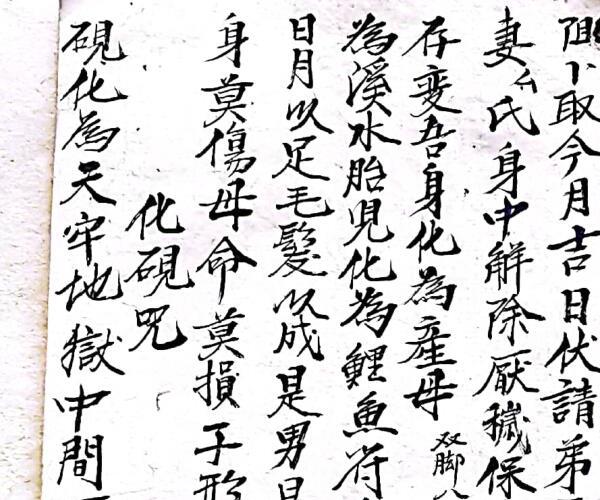 卜取今月吉日伏請弟
妻厶氏身中解除厭穢保
存变吾身化為產母双脚
為溪水胎児化為鯉魚符
日月以足毛髮以成是男
身莫傷母命莫損子形
化硯咒
硯化為天牢地獄中間